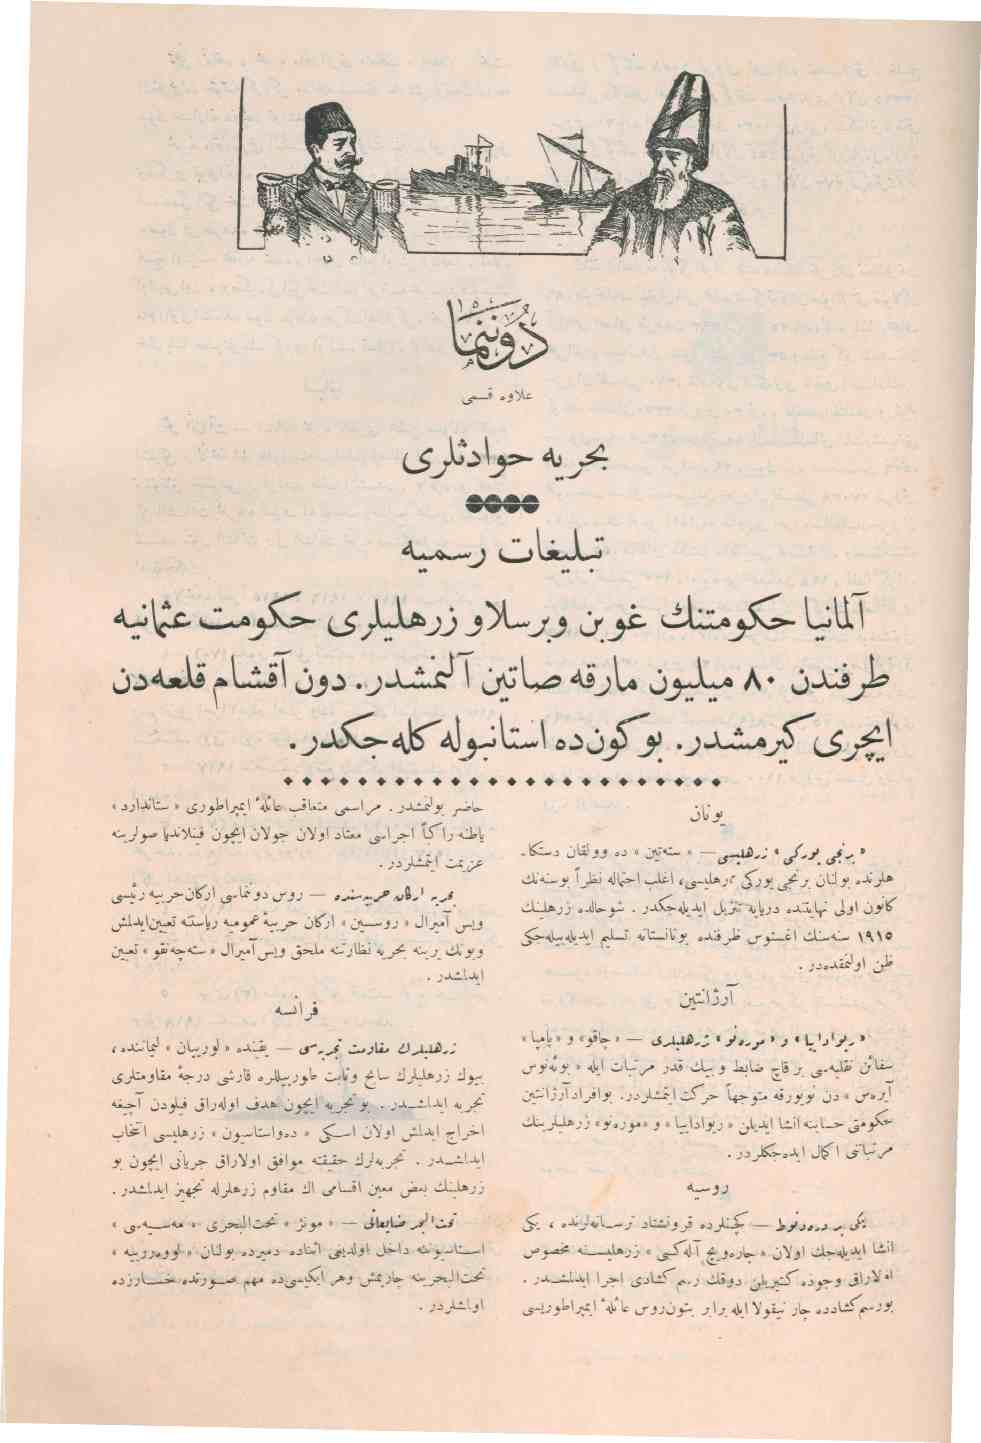 دوننما
علاوه قسمی
بحریه حوادثلری
تبلیغات رسمیه
آلمانیا حكومتنك غوبن وبرسلاو زرهلیلری حكومت عثمانیه
طرفندن ٨٠ میلیون مارقه صاتین آلنمشدر. دون آقشام قلعه‌دن
ایچری كیرمشدر. بو كون‌ده استانبوله كله‌جكدر.
یونان
« برنجی یوركی » زرهلیسی — « سته‌تین » ده وولقان دستكا.
هلرنده بولنان برنجی یوركی زرهلیسی، اغلب احتماله نظراً بوسنه‌نك
كانون اولی نهایتنده دریایه تنزیل ایدیله‌جكدر . شوحالده زرهلینك
١٩١٥ سنه‌سنك اغستوس ظرفنده یونانستانه تسلیم ایدیله‌بیله‌جكی
ظن اولنمقده‌در .
آرژانتین
« ریوادابیا » و « موره‌نو » زرهلیلری — « چاقو » و « پامپا »
سفائن نقلیه‌سی بر قاچ ضابط و بیك قدر مرتبات ایله « بوئه‌نوس
آیره‌س » دن نویورقه متوجهاً حركت ایتمشلردر. بوافراد آرژانتین
حكومتی حسابنه انشا ایدیلن « ریوادابیا » و « موره‌نو » زرهلیلرینك
مرتباتنی اكمال ایده‌جكلردر .
روسیه
یكی بر دره‌دنوط — كچنلرده قرونشتاد ترسانه‌لرنده ، یكی
انشا ایدیله‌جك اولان « چاره‌ویچ آله‌كسی » زرهلیسنه مخصوص
اولاراق وجوده كتیریلن دوقك رسم كشادی اجرا ایدلمشدر .
بورسم كشادده چار نیقولا ایله برابر بتون روس عائلهٔ ایمپراطوریسی
حاضر بولنمشدر . مراسمی متعاقب عائلهٔ ایمپراطوری « ستاندارد »
یاطنه راكباً اجراسی معتاد اولان جولان ایچون فینلاندیا صولرینه
عزیمت ایتمشلردر .
بحریه اركان حربیه‌سنده — روس دوننماسی اركان حربیه رئیسی
ویس آمیرال « روسین » اركان حربیهٔ عمومیه ریاستنه تعیین ایدلمش
وبونك یرینه بحریه نظارتنه ملحق ویس آمیرال « سته‌چه‌نقو » تعیین
ایدلمشدر .
فرانسه
زرهلیلرك مقاومت تجربه‌سی — یقینده « لوریان » لیماننده ،
بیوك زرهلیلرك سابح وثابت طوربیللره قارشی درجهٔ مقاومتلری
تجربه ایدلمشدر . بو تجربه ایچون هدف اوله‌راق فیلودن آچیغه
اخراج ایدلمش اولان اسكی « ده‌واستاسیون » زرهلیسی انتخاب
ایدلمشدر . تجربه‌لرك حقیقته موافق اولاراق جریانی ایچون بو
زرهلینك بعض معین اقسامی اك مقاوم زرهلرله تجهیز ایدلمشدر.
تحت‌البحر ضایعاتی — « مونژ » تحت‌البحری
استاسیوننه داخل اولدیغی اثناده دمیرده بولنان
تحت‌البحرینه چارپمش وهر ایكیسی‌ده مهم صورتده خسارزده
اولمشلردر .